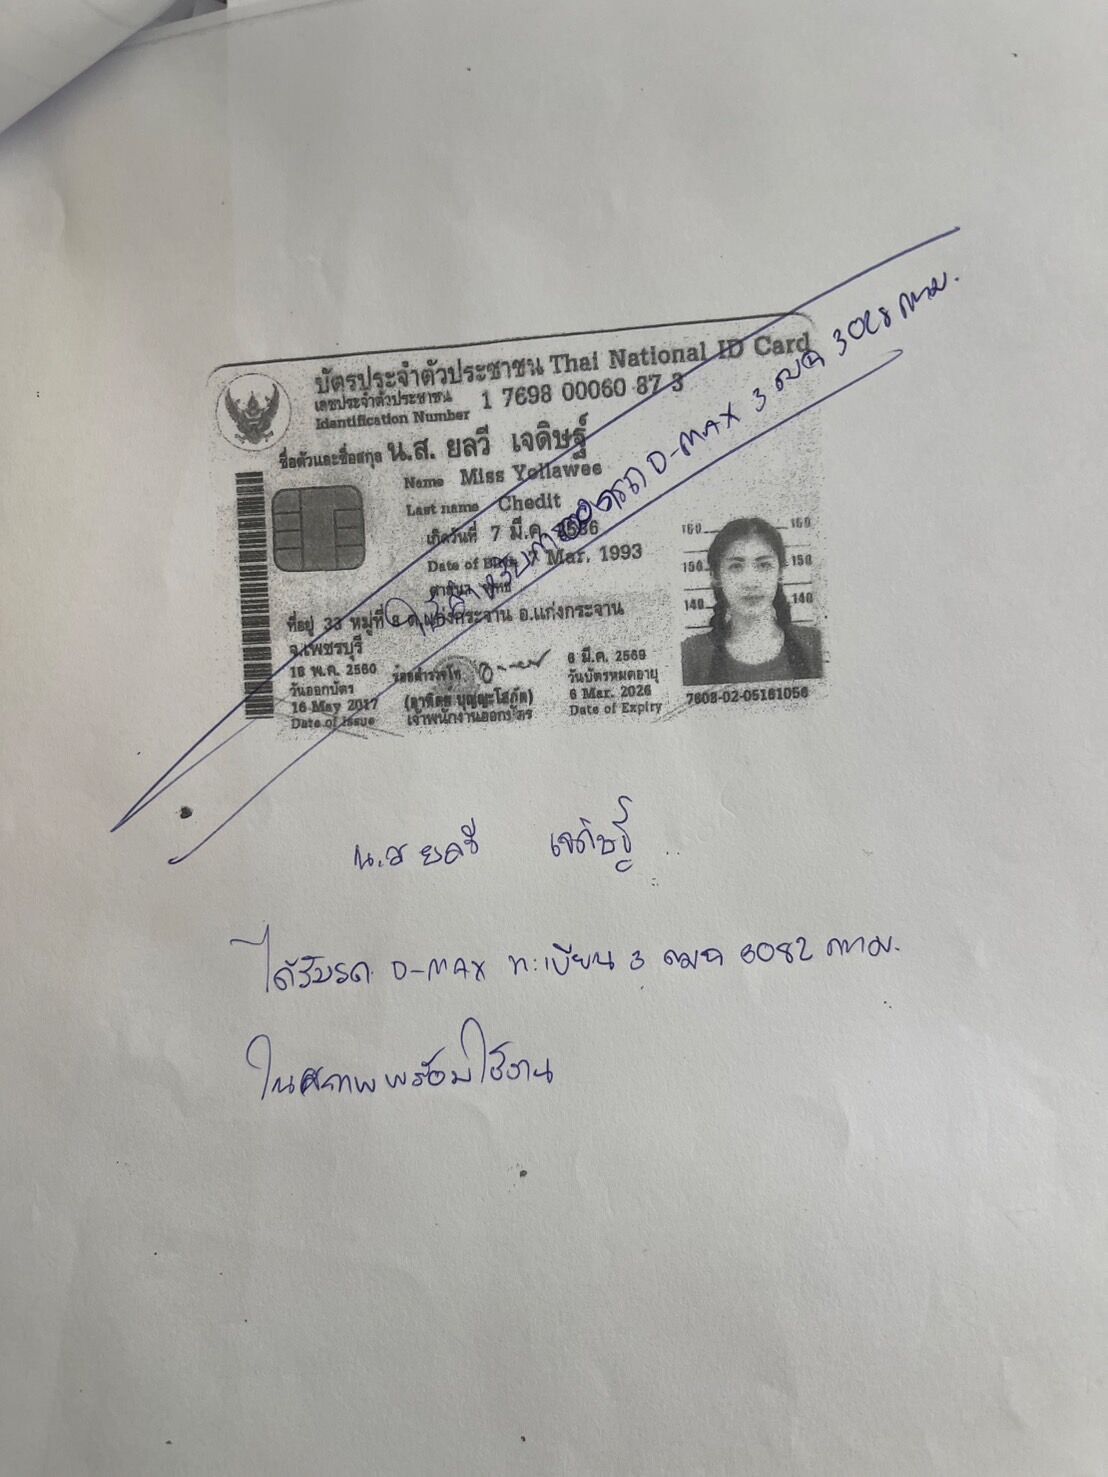 บัตรประจำตัวประชาชน Thai National ID Card
เลขประจำตัวประชาชน
Identification Number
1 7698 00060 87 3
ชื่อตัวและชื่อสกุล น.ส. ยลวี เจดิษฐ์
Name Miss Yollawee
Last name Chedit
เกิดวันที่ 7 มี.ค. 2536
Date of Birth 7 Mar. 1993
ศาสนา พุทธ
ที่อยู่ 33 หมู่ที่ 8 ต.แก่งกระจาน อ.แก่งกระจาน
จ.เพชรบุรี
16 พ.ค. 2560
วันออกบัตร
16 May 2017
Date of Issue
ร้อยตำรวจโท
(อาทิตย์ บุญญะโสภัต)
เจ้าพนักงานออกบัตร
6 มี.ค. 2569
วันบัตรหมดอายุ
6 Mar. 2026
Date of Expiry
160 160
150 150
140 140
7608-02-05161056
รถ D-MAX 3 ฒฉ 3028 กทม.
น.ส ยลวี เจดิษฐ์
ได้รับรถ D-MAX ทะเบียน 3 ฒฉ 3082 กทม.
ในสภาพพร้อมใช้งาน